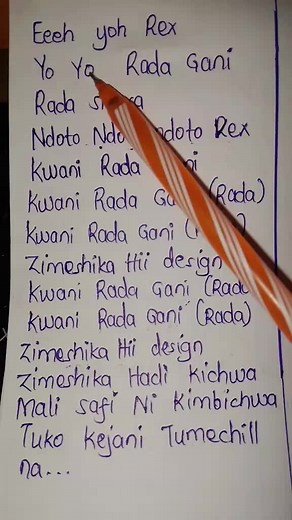 Eeeh yoh Rex
Yo Yo Rada Gani
Rada
Ndoto Ndoto Rex
Kwani Rada
Kwani Rada (Rada)
Kwani Rada Gani
Zimeshika Hii design
Kwani Rada Gani (Rada
Kwani Rada Gani (Rada)
Zimeshika Hii design
Zimeshika Hadi Kichwa
Mali safi Ni Kimbichwa
Tuko Kejani Tumechill
na...